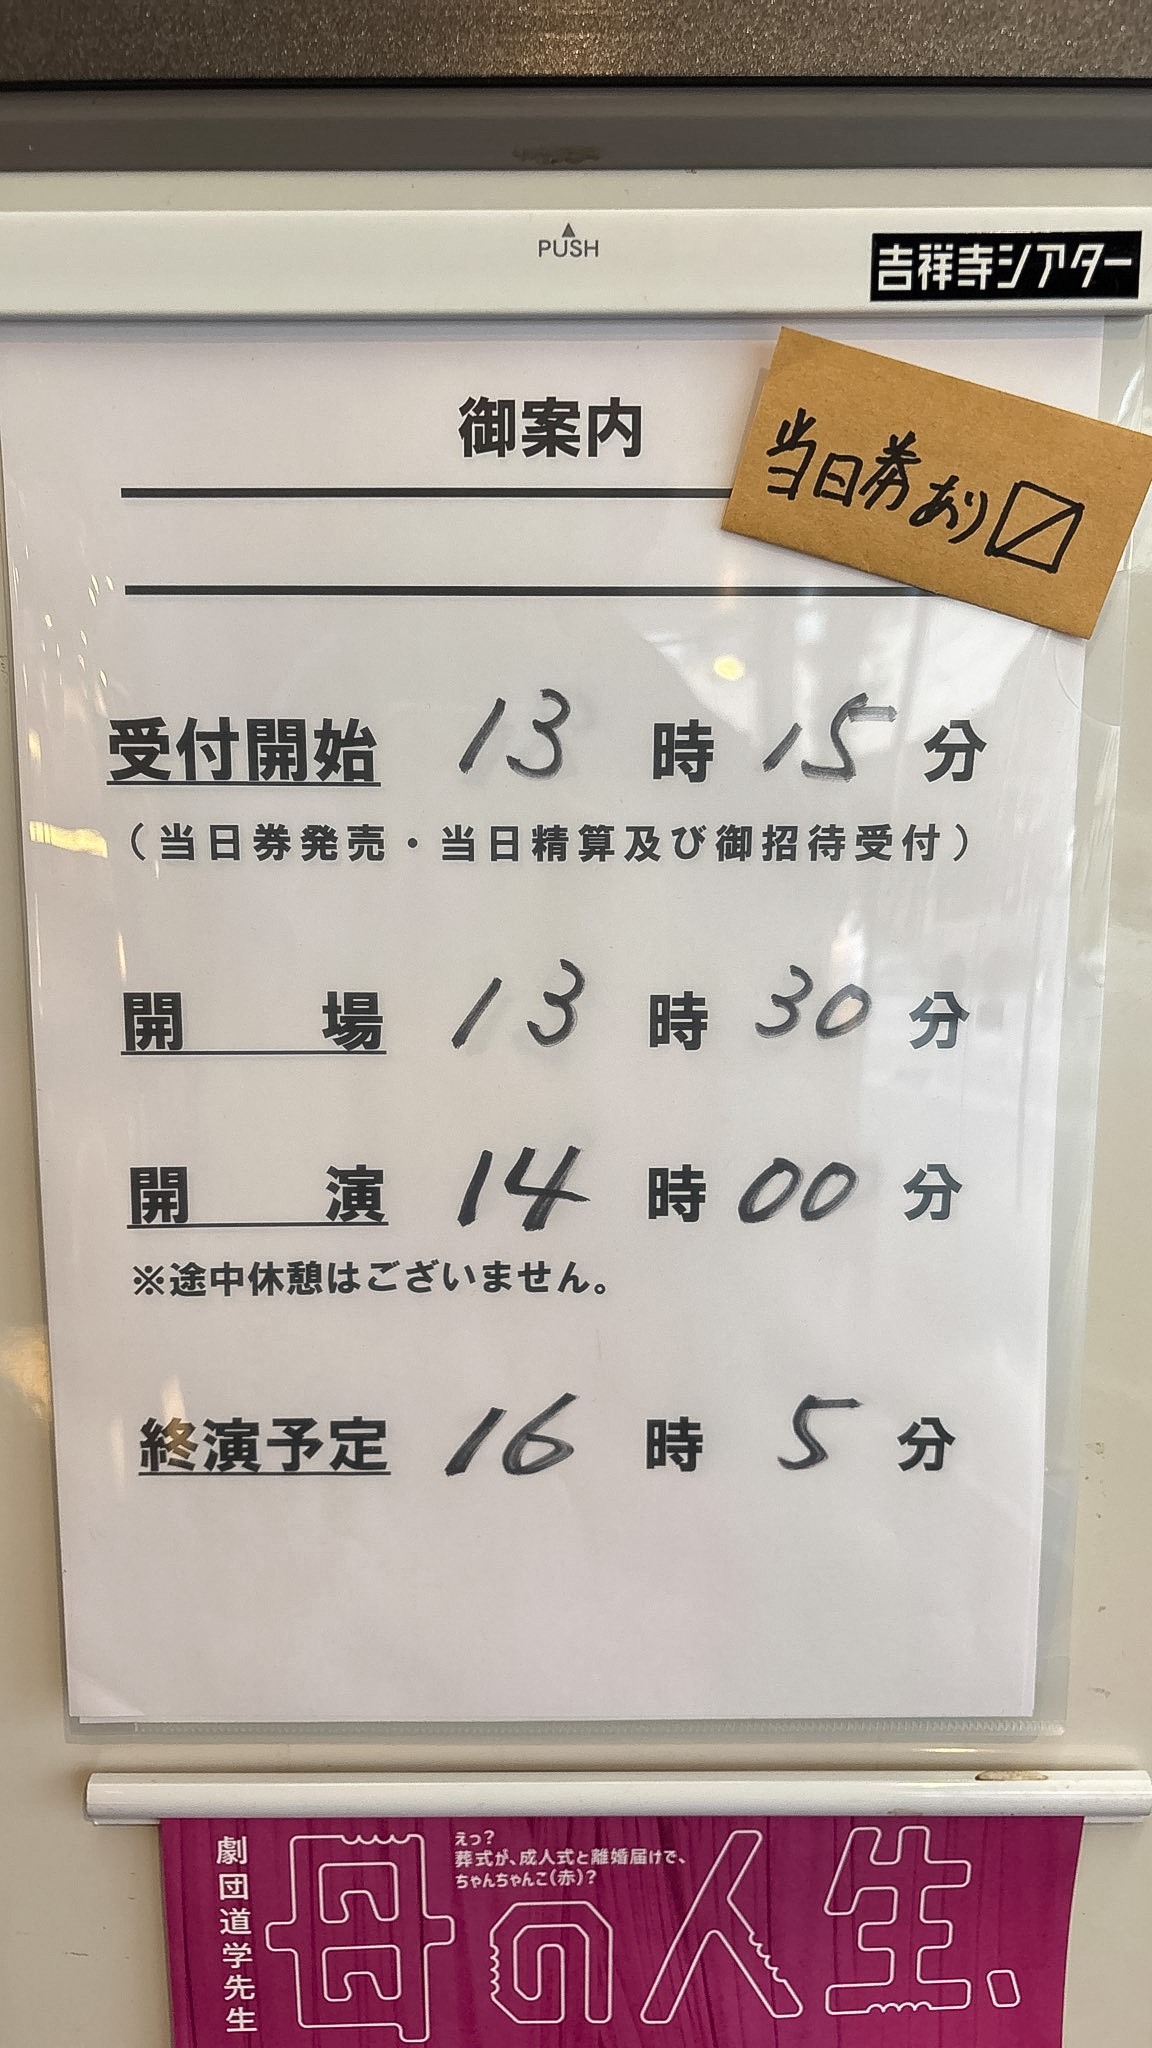 ▲
PUSH
吉祥寺シアター
御案内
当日券あり☑
受付開始 13時15分
（当日券発売・当日精算及び御招待受付）
開場 13時30分
開演 14時00分
※途中休憩はございません。
終演予定 16時5分
劇団道学先生
えっ？
葬式が、成人式と離婚届けで、
ちゃんちゃんこ（赤）？
母の人生、